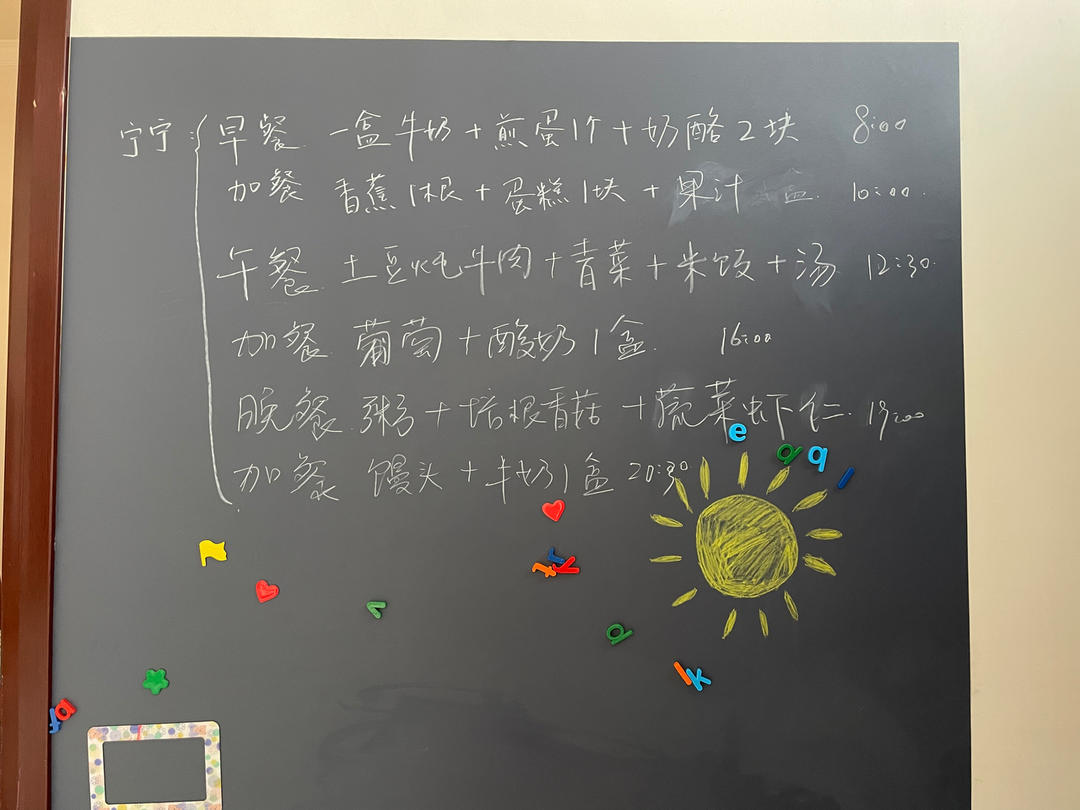 宁宁:{早餐 一盒牛奶+煎蛋1个+奶酪2块 8:00
加餐 香蕉1根+蛋糕1块+果汁 盒 10:00.
午餐 土豆炖牛肉+青菜+米饭+汤 12:30.
加餐 葡萄+酸奶1盒. 16:00
晚餐 粥+培根香菇+蔬菜虾仁. 19:00
加餐 馒头+牛奶1盒 20:30
e q q l
r y
d
l k
f a